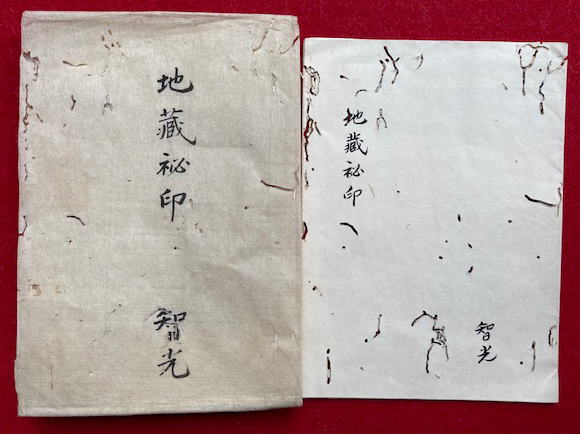 地藏祕印
智光
地藏祕印
智光